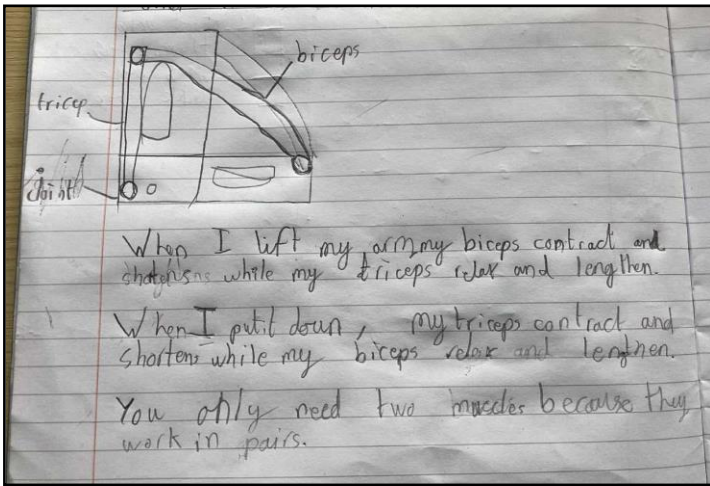 biceps
tricep
Joint
When I lift my arm my biceps contract and
while my triceps relax and lengthen.
When I put it down, my triceps contract and
shortens while my biceps relax and lengthen.
You only need two muccles because they
work in pairs.